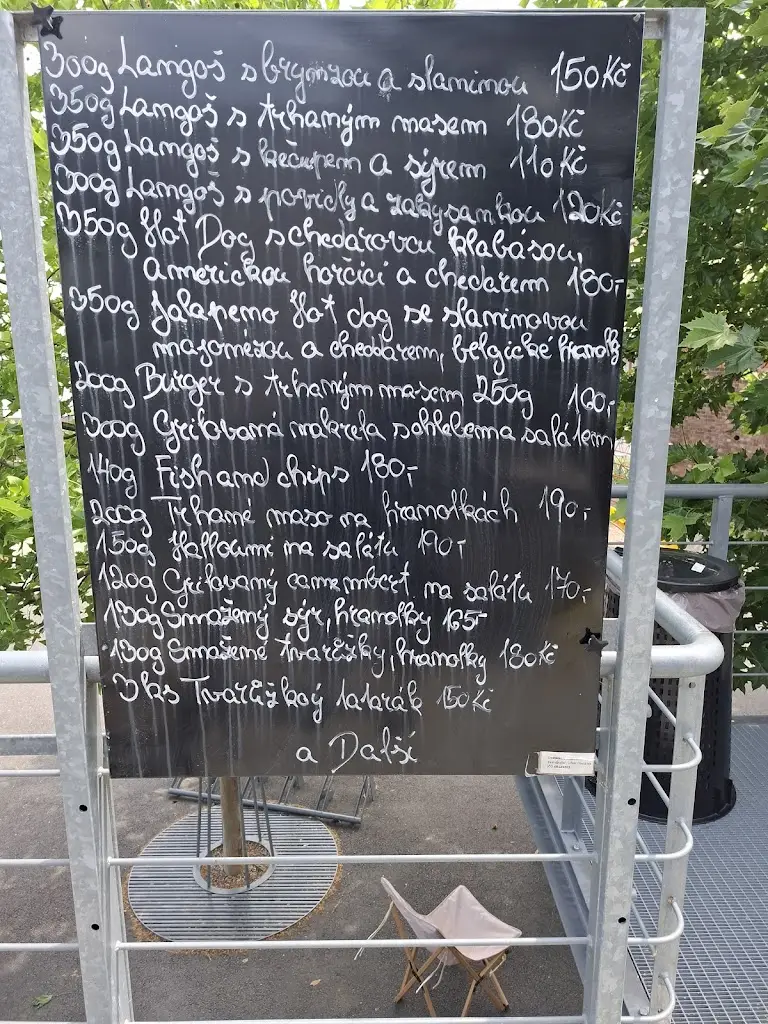 300g Langoš s brynzou a slaninou 150Kč
350g Langoš s trhaným masem 180Kč
350g Langoš s kečupem a sýrem 110Kč
300g Langoš s povidly a zakysankou 120Kč
350g Hot Dog s chedarovou klabásou,
americkou horčicí a chedarem 180,-
350g Jalapeno Hot dog se slaninovou
majonézou a chedarem, belgické hranolky
200g Burger s trhaným masem 250g
300g Grilovaná makrela s chlebem a salátem
140g Fish and chips 180,-
200g Trhané maso na hranolkách 190,-
150g Halloumi na salátu 190,-
120g Grilovaný camembert na salátu 170,-
130g Smažený sýr, hranolky 165,-
130g Smažené tvarůžky, hranolky 180Kč
3ks Tvarůžkový tatarák 150Kč
a Další